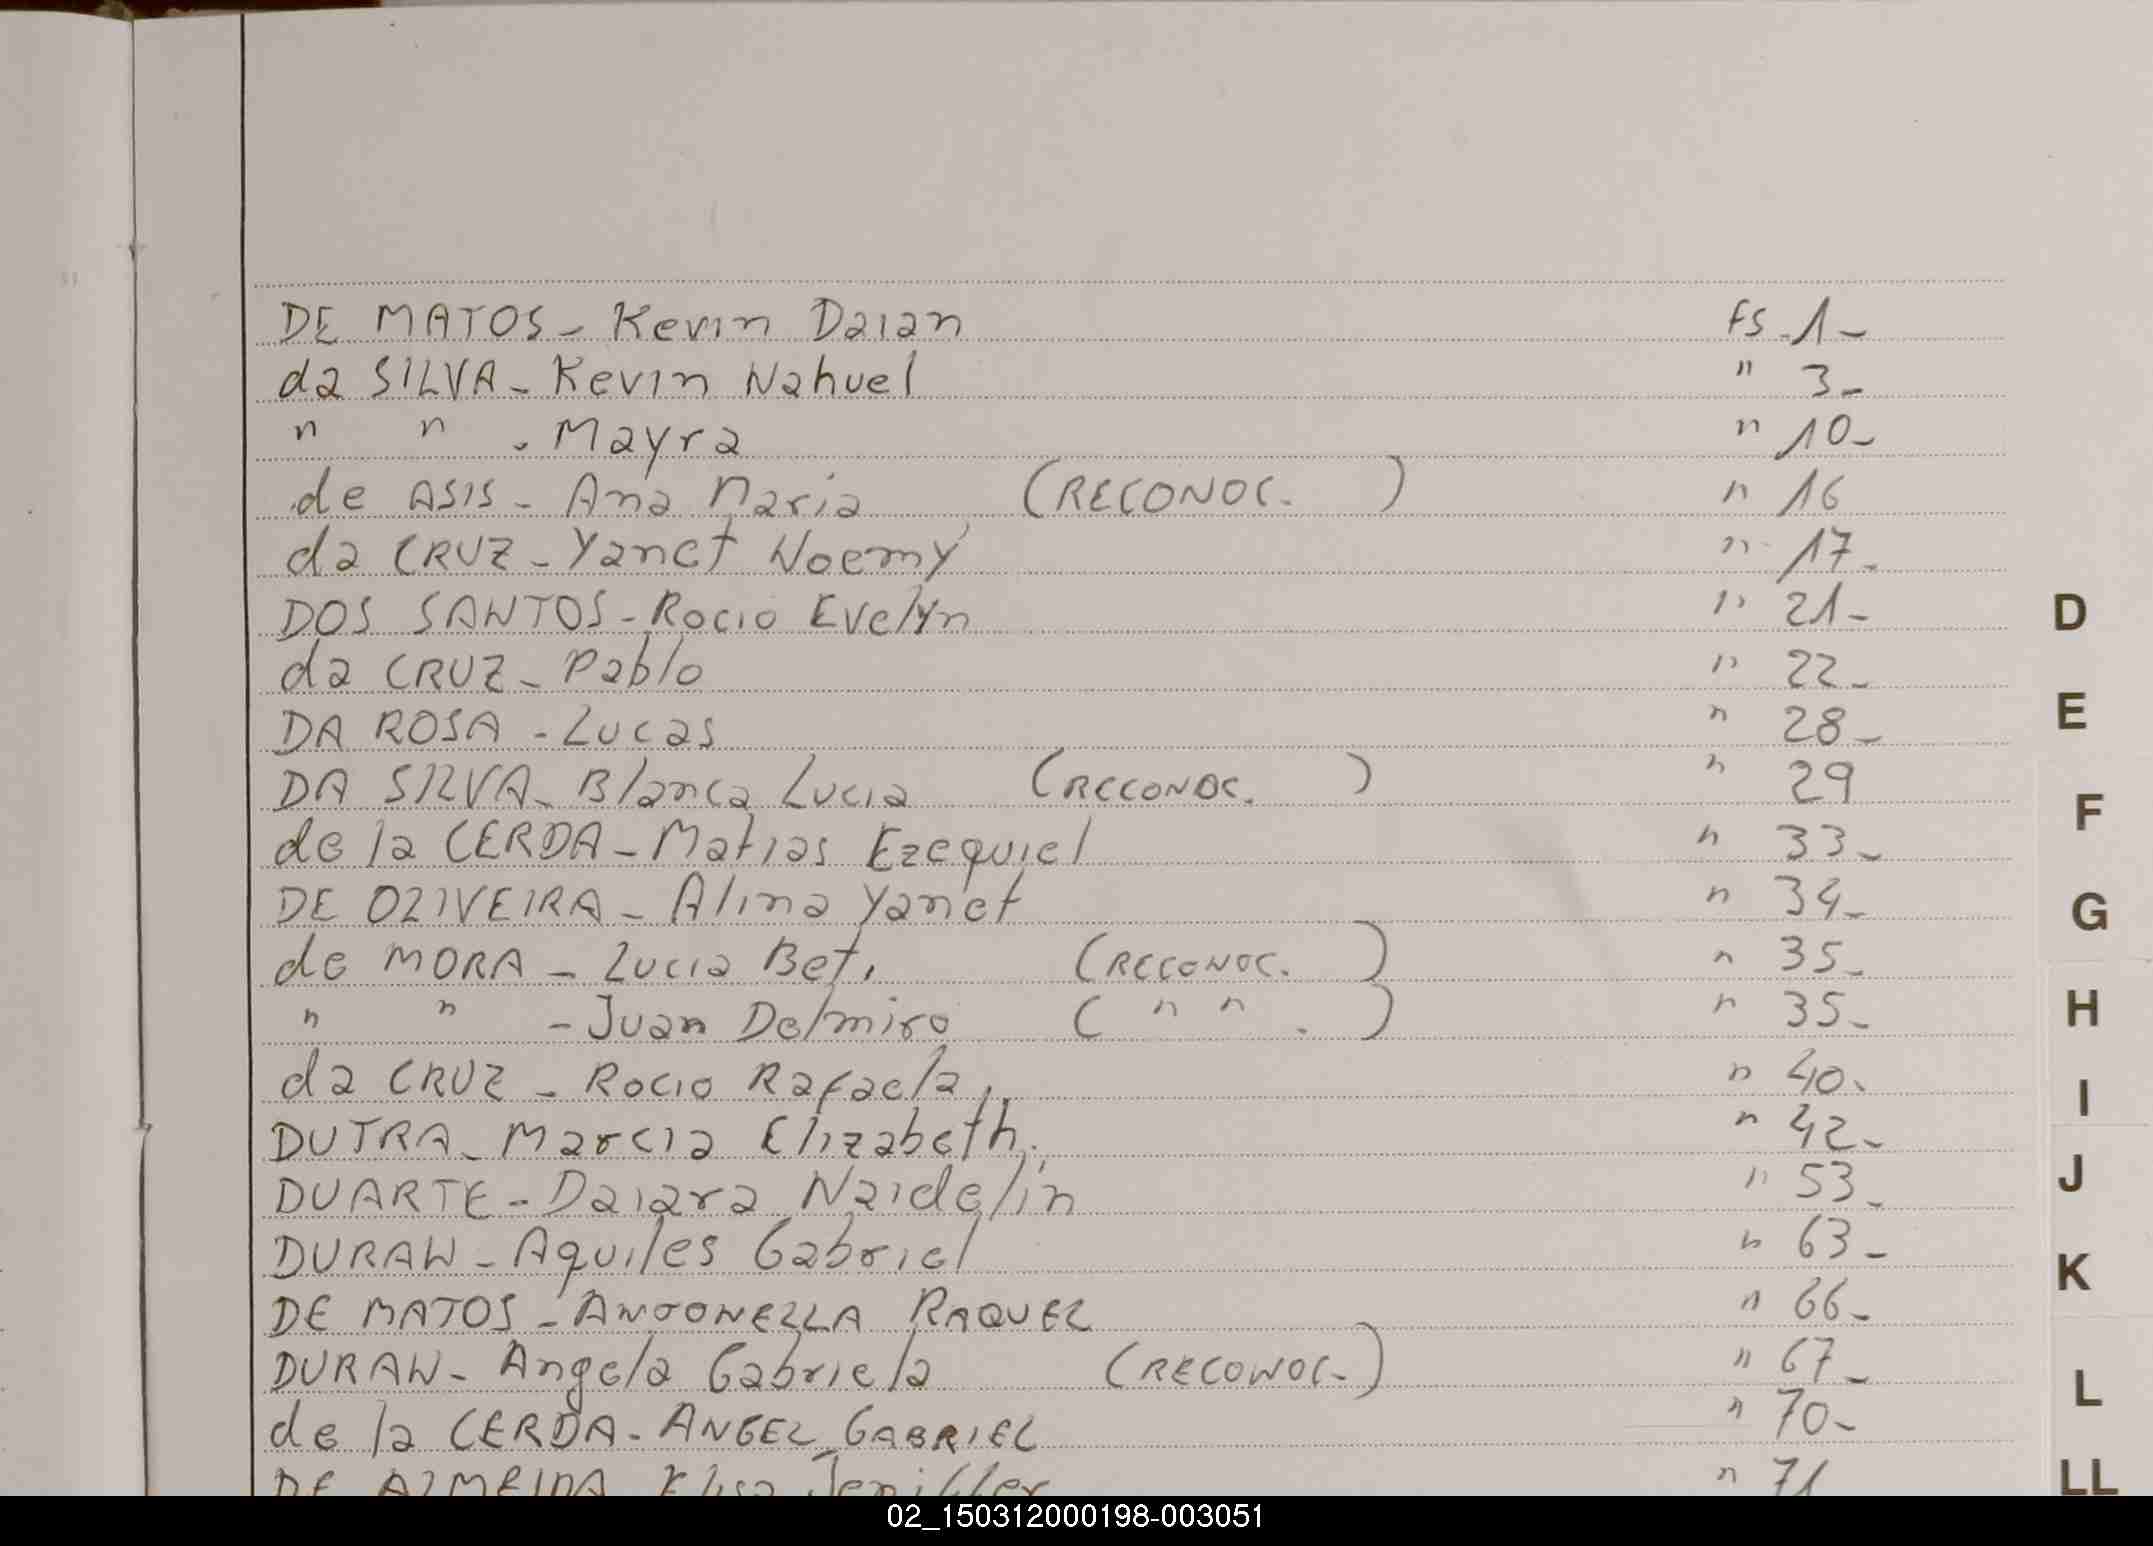 DE MATOS - Kevin Daian FS. 1-
da SILVA - Kevin Nahuel " 3-
" " - Mayra " 10-
de ASIS - Ana Maria (RECONOC. ) " 16
da CRUZ - Yanet Noemy " 17-
DOS SANTOS - Rocio Evelyn " 21-
D
da CRUZ - Pablo " 22-
DA ROSA - Lucas " 28-
E
DA SILVA - Blanca Lucia (RECONOC. ) " 29
F
de la CERDA - Matias Ezequiel " 33-
DE OLIVEIRA - Alina Yanet " 34-
G
de MORA - Lucia Bet. (RECONOC. ) " 35-
" " - Juan Delmiro ( " " . ) " 35-
H
da CRUZ - Rocio Rafaela " 40-
I
DUTRA - Marcia Elizabeth. " 42-
DUARTE - Daiara Naidelin " 53-
J
DURAN - Aquiles Gabriel " 63-
K
DE MATOS - ANTONELLA RAQUEL " 66-
DURAN - Angela Gabriela (RECONOC.) " 67-
L
de la CERDA - ANGEL GABRIEL " 70-
DE ALMEIDA Elisa Jeniffer " 71
LL
02_150312000198-003051